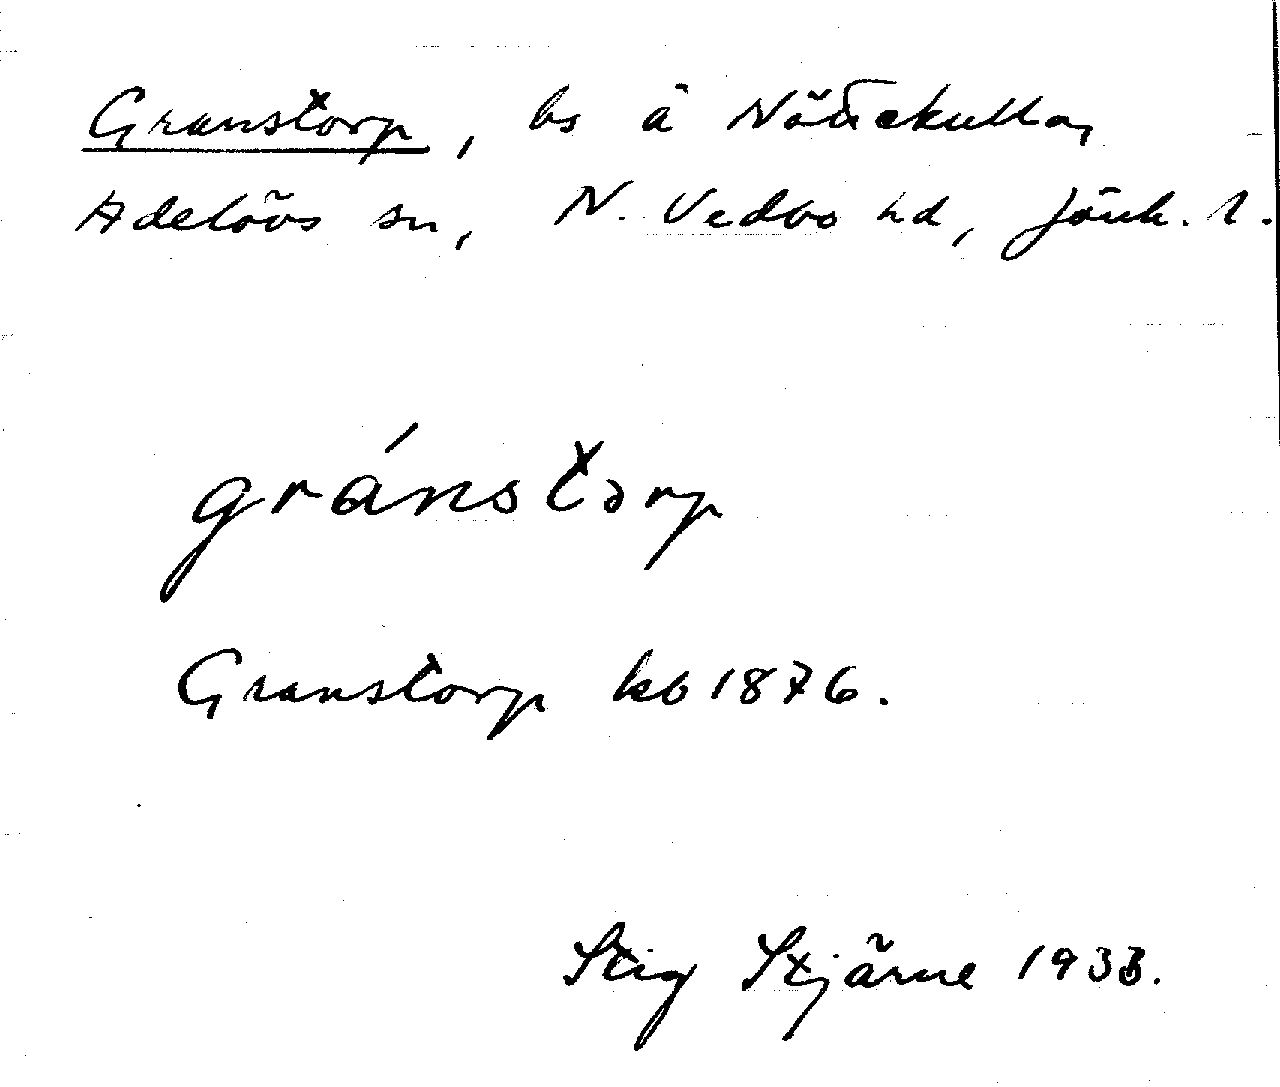 Granstorp, bs å Nättekulla,
Adelövs sn, N. Vedbo hd, Jönk. l.
gránstorp
Granstorp kb 1876.
Stig Stjärne 1933.